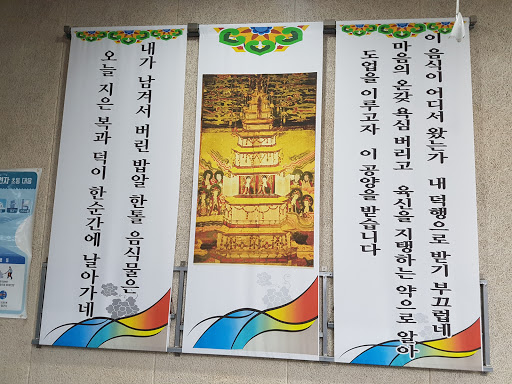 이 음식이 어디서 왔는가 내 덕행으로 받기 부끄럽네
마음의 온갖 욕심 버리고 육신을 지탱하는 약으로 알아
도업을 이루고자 이 공양을 받습니다
내가 남겨서 버린 밥알 한톨 음식물은
오늘 지은 복과 덕이 한순간에 날아가네